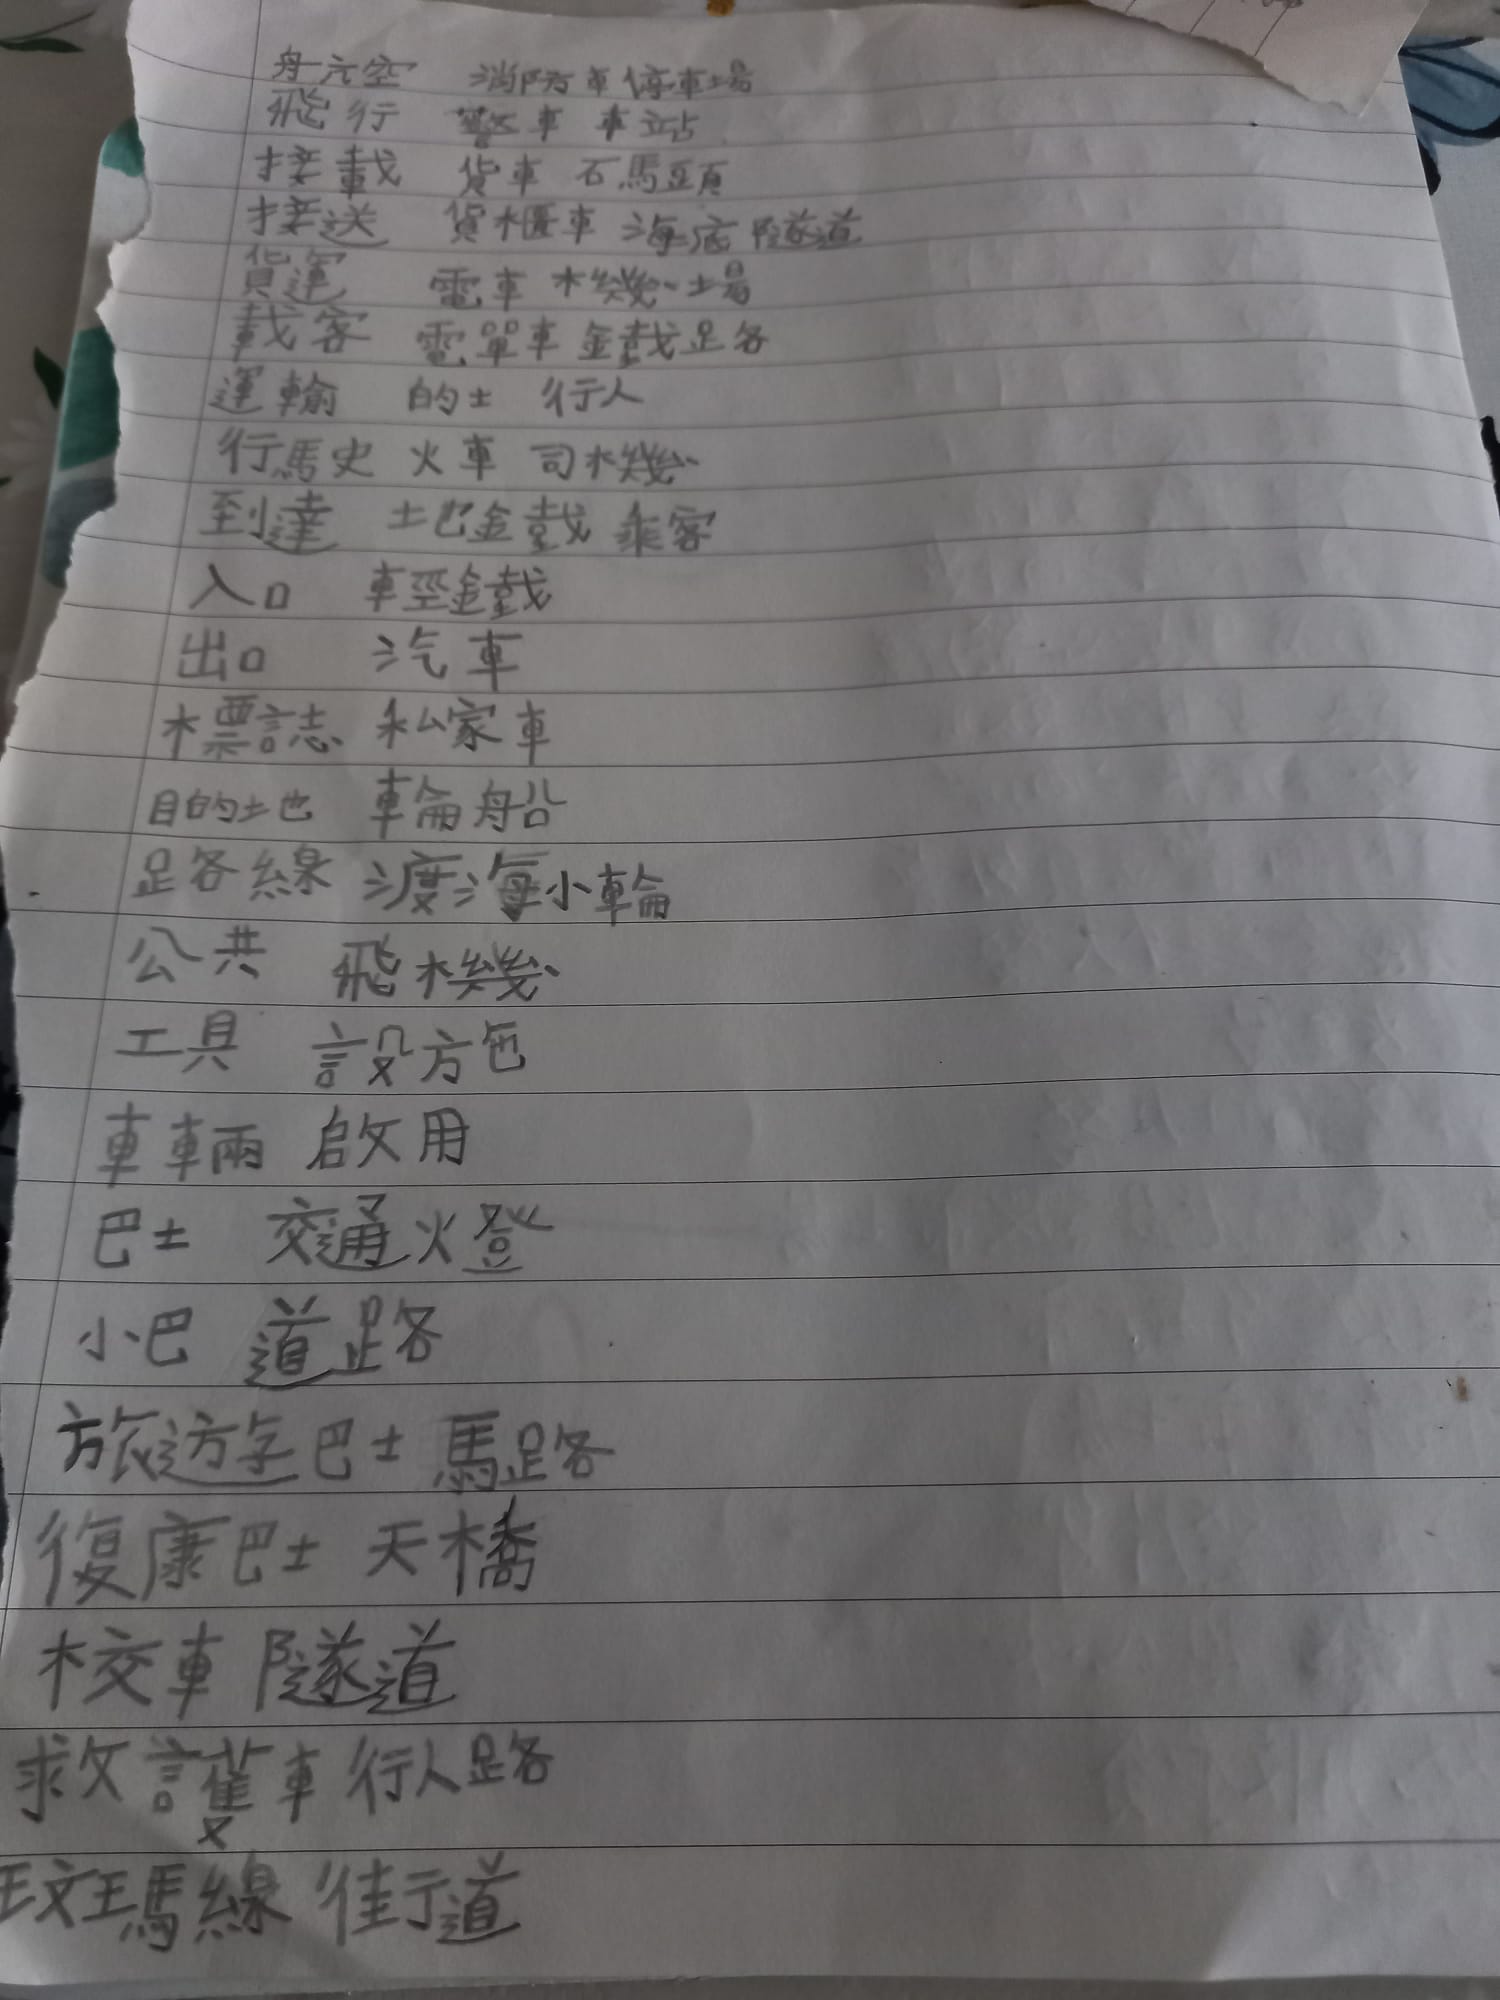 航空 消防車 停車場
飛行 警車 車站
接載 貨車 碼頭
接送 貨櫃車 海底隧道
貨運 電車 機場
載客 電單車 鐵路
運輸 的士 行人
行駛 火車 司機
到達 地鐵 乘客
入口 輕鐵
出口 汽車
標誌 私家車
目的地 輪船
路線 渡海小輪
公共 飛機
工具 設施
車輛 啟用
巴士 交通燈
小巴 道路
旅遊巴士 馬路
復康巴士 天橋
校車 隧道
救護車 行人路
斑馬線 街道